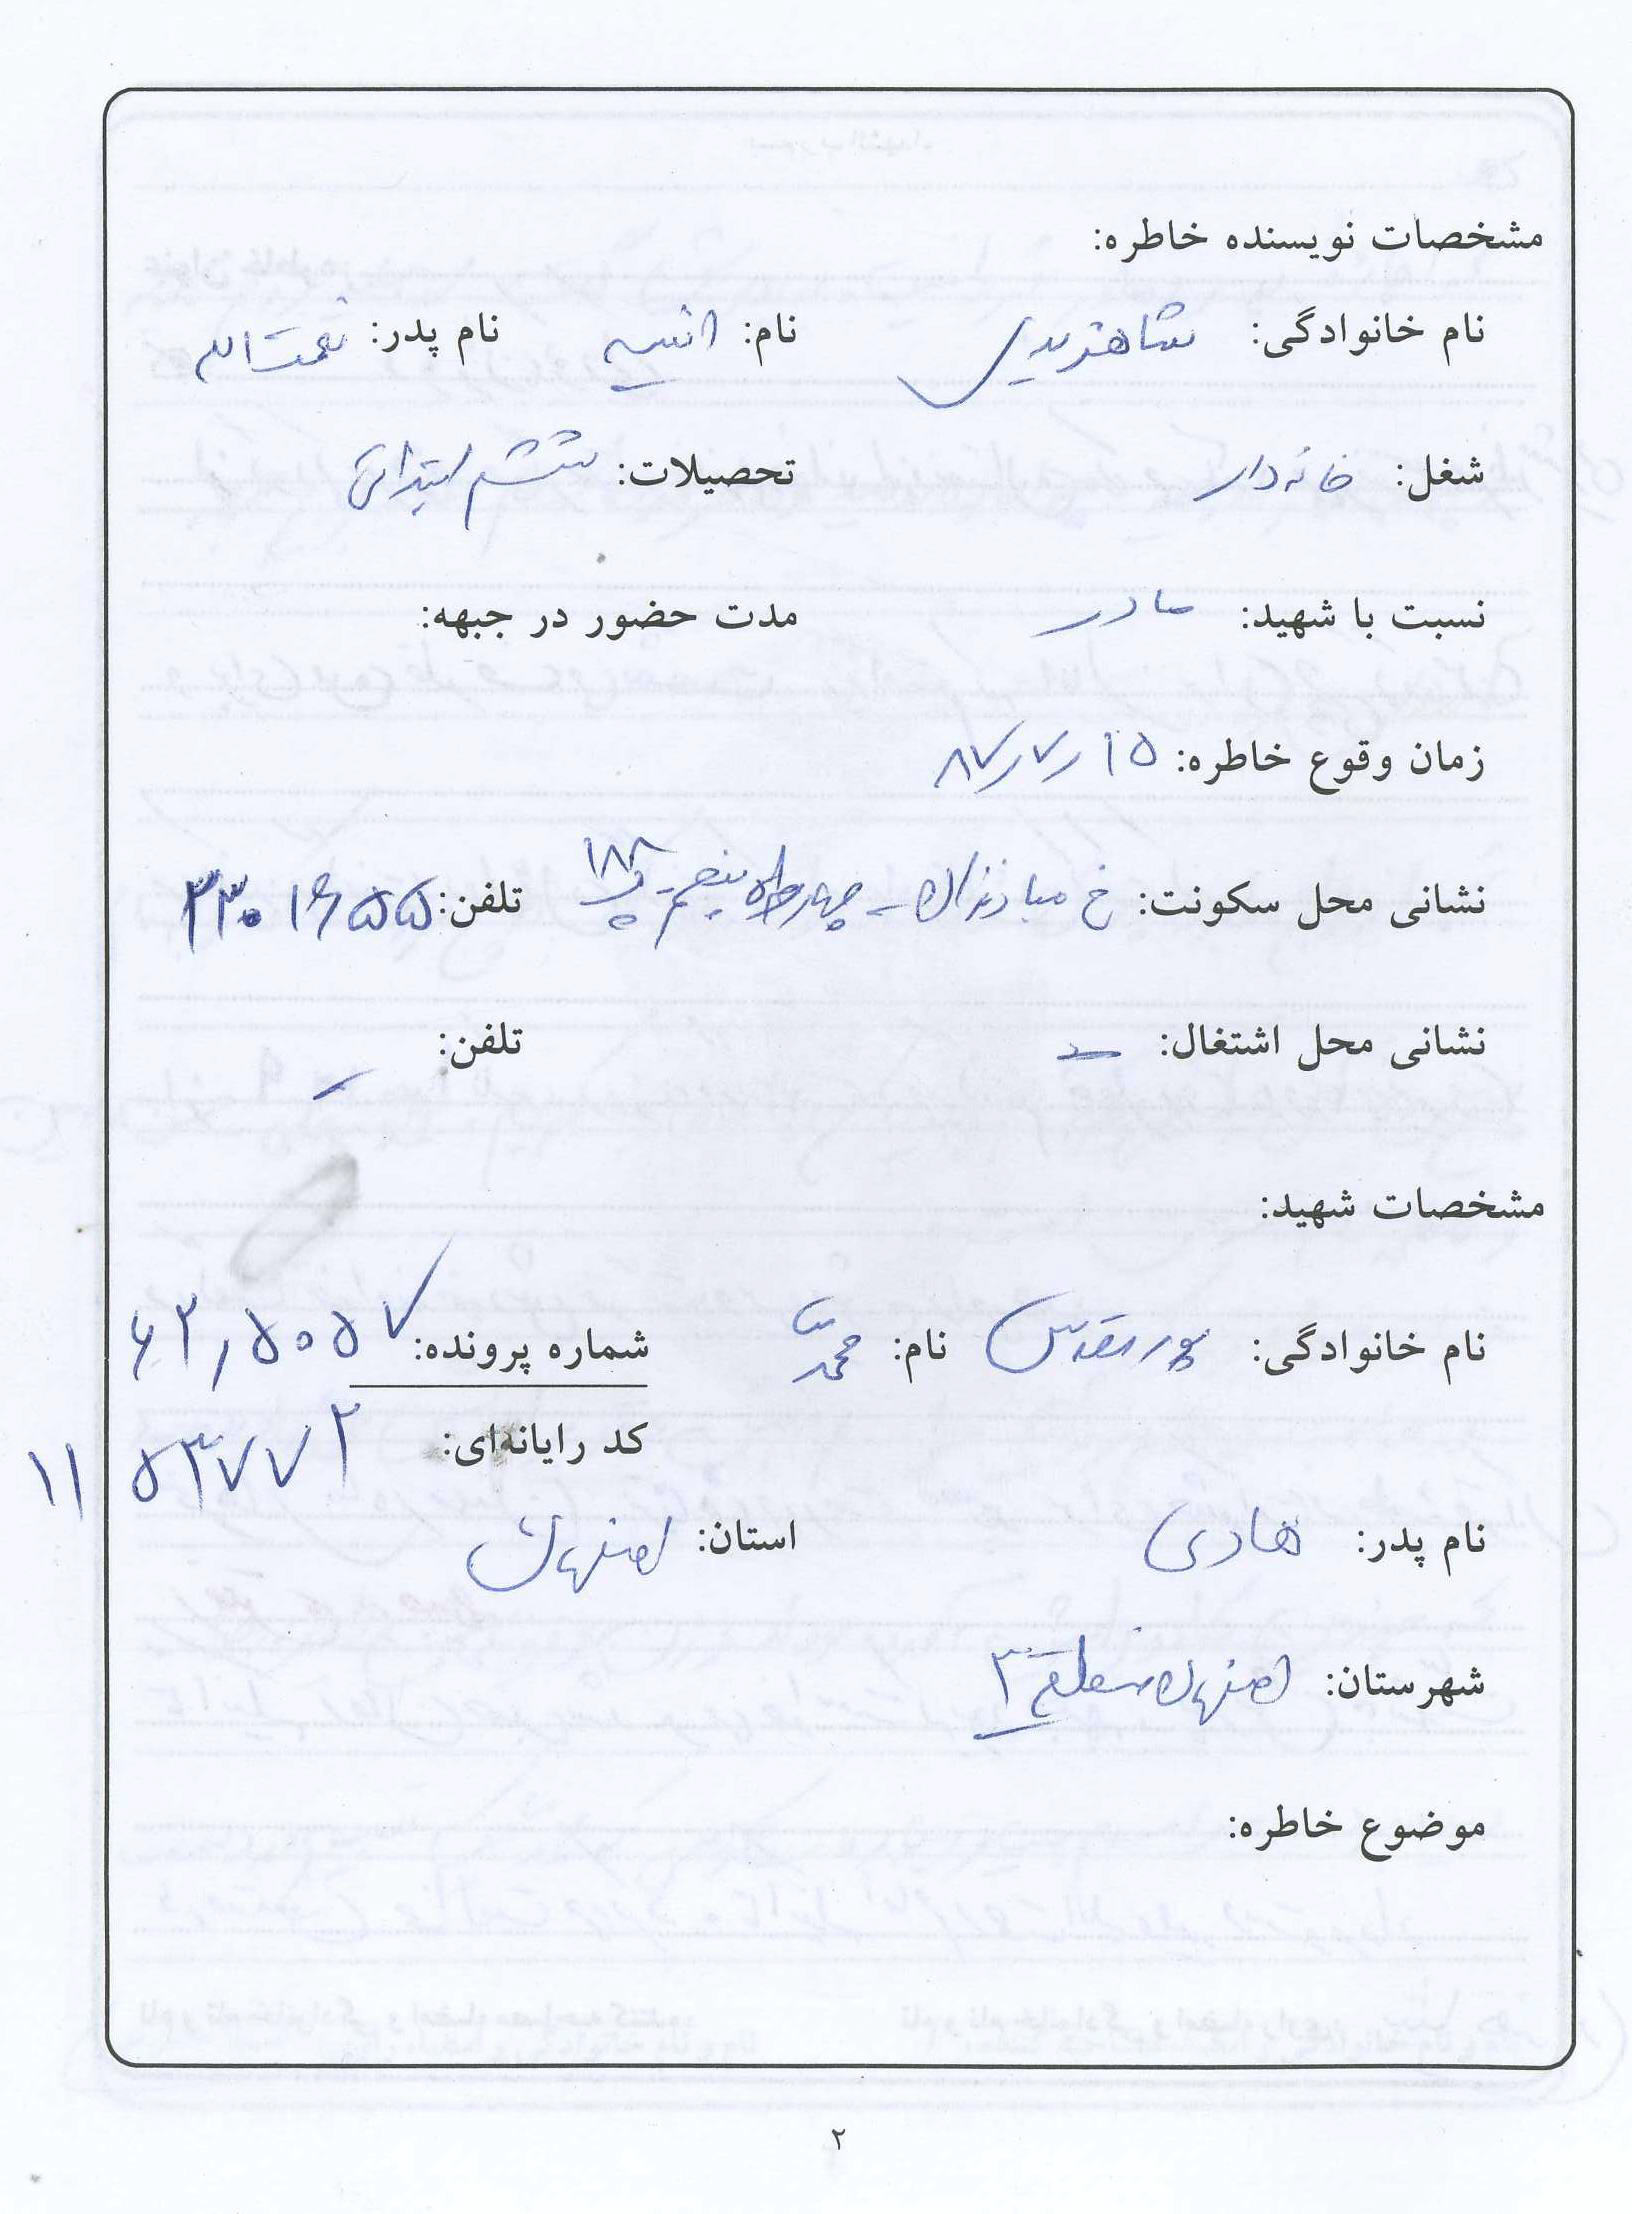 مشخصات نویسنده خاطره:
نام خانوادگی: شاهزیدی نام: انسیه نام پدر: نعمت اله
شغل: خانه دار تحصیلات: ششم ابتدائی
نسبت با شهید: مادر مدت حضور در جبهه:
زمان وقوع خاطره: ۱۵ ر ۷ ر ۸۷
نشانی محل سکونت: خ مبارزان - چهارراه پنجم - پ ۱۸۸ تلفن: ۲۳۰۱۶۵۵
نشانی محل اشتغال: — تلفن: —
مشخصات شهید:
نام خانوادگی: پور مقدس نام: محمد شماره پرونده: ۶۲ر۵۰۵۷
کد رایانه‌ای: ۱۱۵۳۷۷۲
نام پدر: هادی استان: اصفهان
شهرستان: اصفهان منطقه ۳
موضوع خاطره:
۲